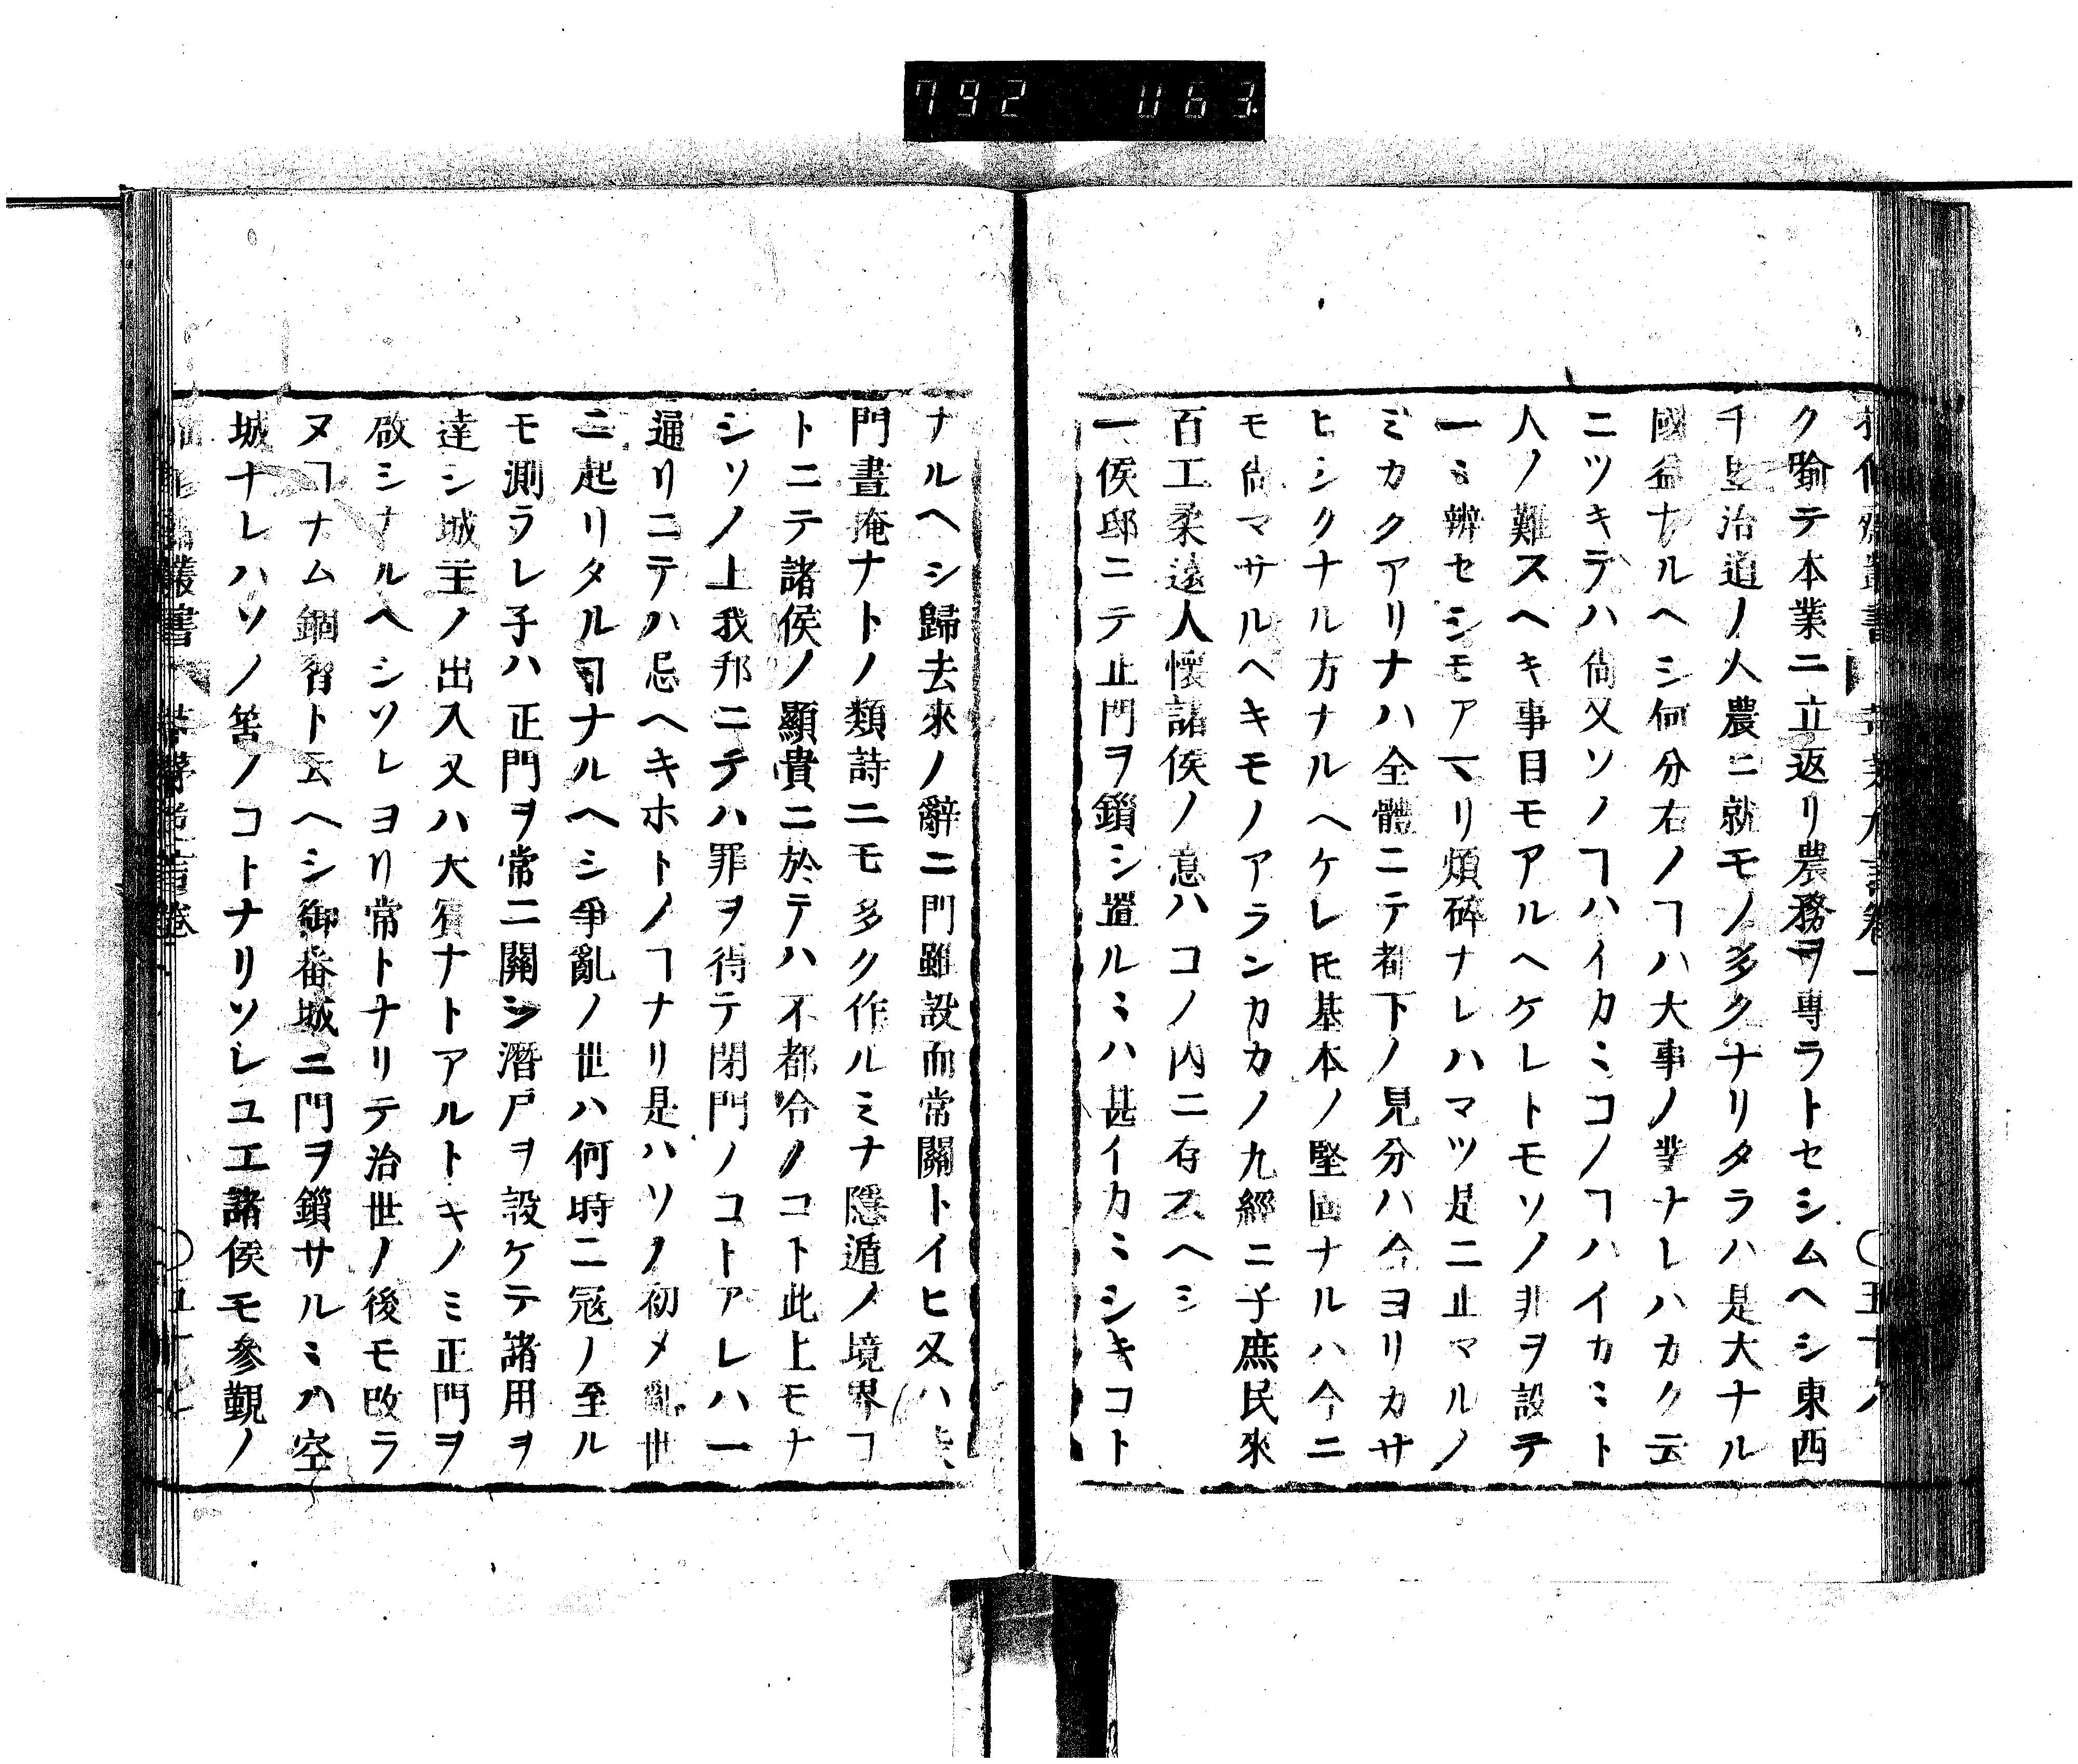 792 063
ク喻テ本業ニ立返リ農務ヲ專ラトセシムヘシ東西
千里治道ノ人農ニ就モノ多クナリタラハ是大ナル
國益ナルヘシ何分右ノヿハ大事ノ業ナレハカク云
ニツキテハ尙又ソノヿハイカミコノヿハイカミト
人ノ難スヘキ事目モアルヘケレトモソノ非ヲ設テ
一ミ辨セシモアマリ煩碎ナレハマツ是ニ止マルノ
ミカクアリナハ全體ニテ都下ノ見分ハ今ヨリカサ
ヒシクナル方ナルヘケレ𪜈基本ノ堅固ナルハ今ニ
モ尙マサルヘキモノアランカカノ九經ニ子庶民來
百工柔遠人懷諸侯ノ意ハコノ內ニ存スヘシ
一侯邸ニテ止門ヲ鎖シ置ルミハ甚イカミシキコト
ナルヘシ歸去來ノ辭ニ門雖設而常關トイヒ又ハ
門晝掩ナトノ類詩ニモ多ク作ルミナ隱遁ノ境界ヿ
トニテ諸侯ノ顯貴ニ於テハ不都合ノコト此上モナ
シソノ上我邦ニテハ罪ヲ得テ閉門ノコトアレハ一
通リニテハ忌ヘキホトノヿナリ是ハソノ初メ亂世
ニ起リタルヿナルヘシ爭亂ノ世ハ何時ニ冦ノ至ル
モ測ラレ子ハ正門ヲ常ニ關シ潛戶ヲ設ケテ諸用ヲ
達シ城主ノ出入又ハ大賓ナトアルトキノミ正門ヲ
啟シナルヘシソレヨリ常トナリテ治世ノ後モ改ラ
ヌヿナム錮習ト云ヘシ御番城ニ門ヲ鎖サルミハ空
城ナレハソノ筈ノコトナリソレユエ諸侯モ參覲ノ
叢書